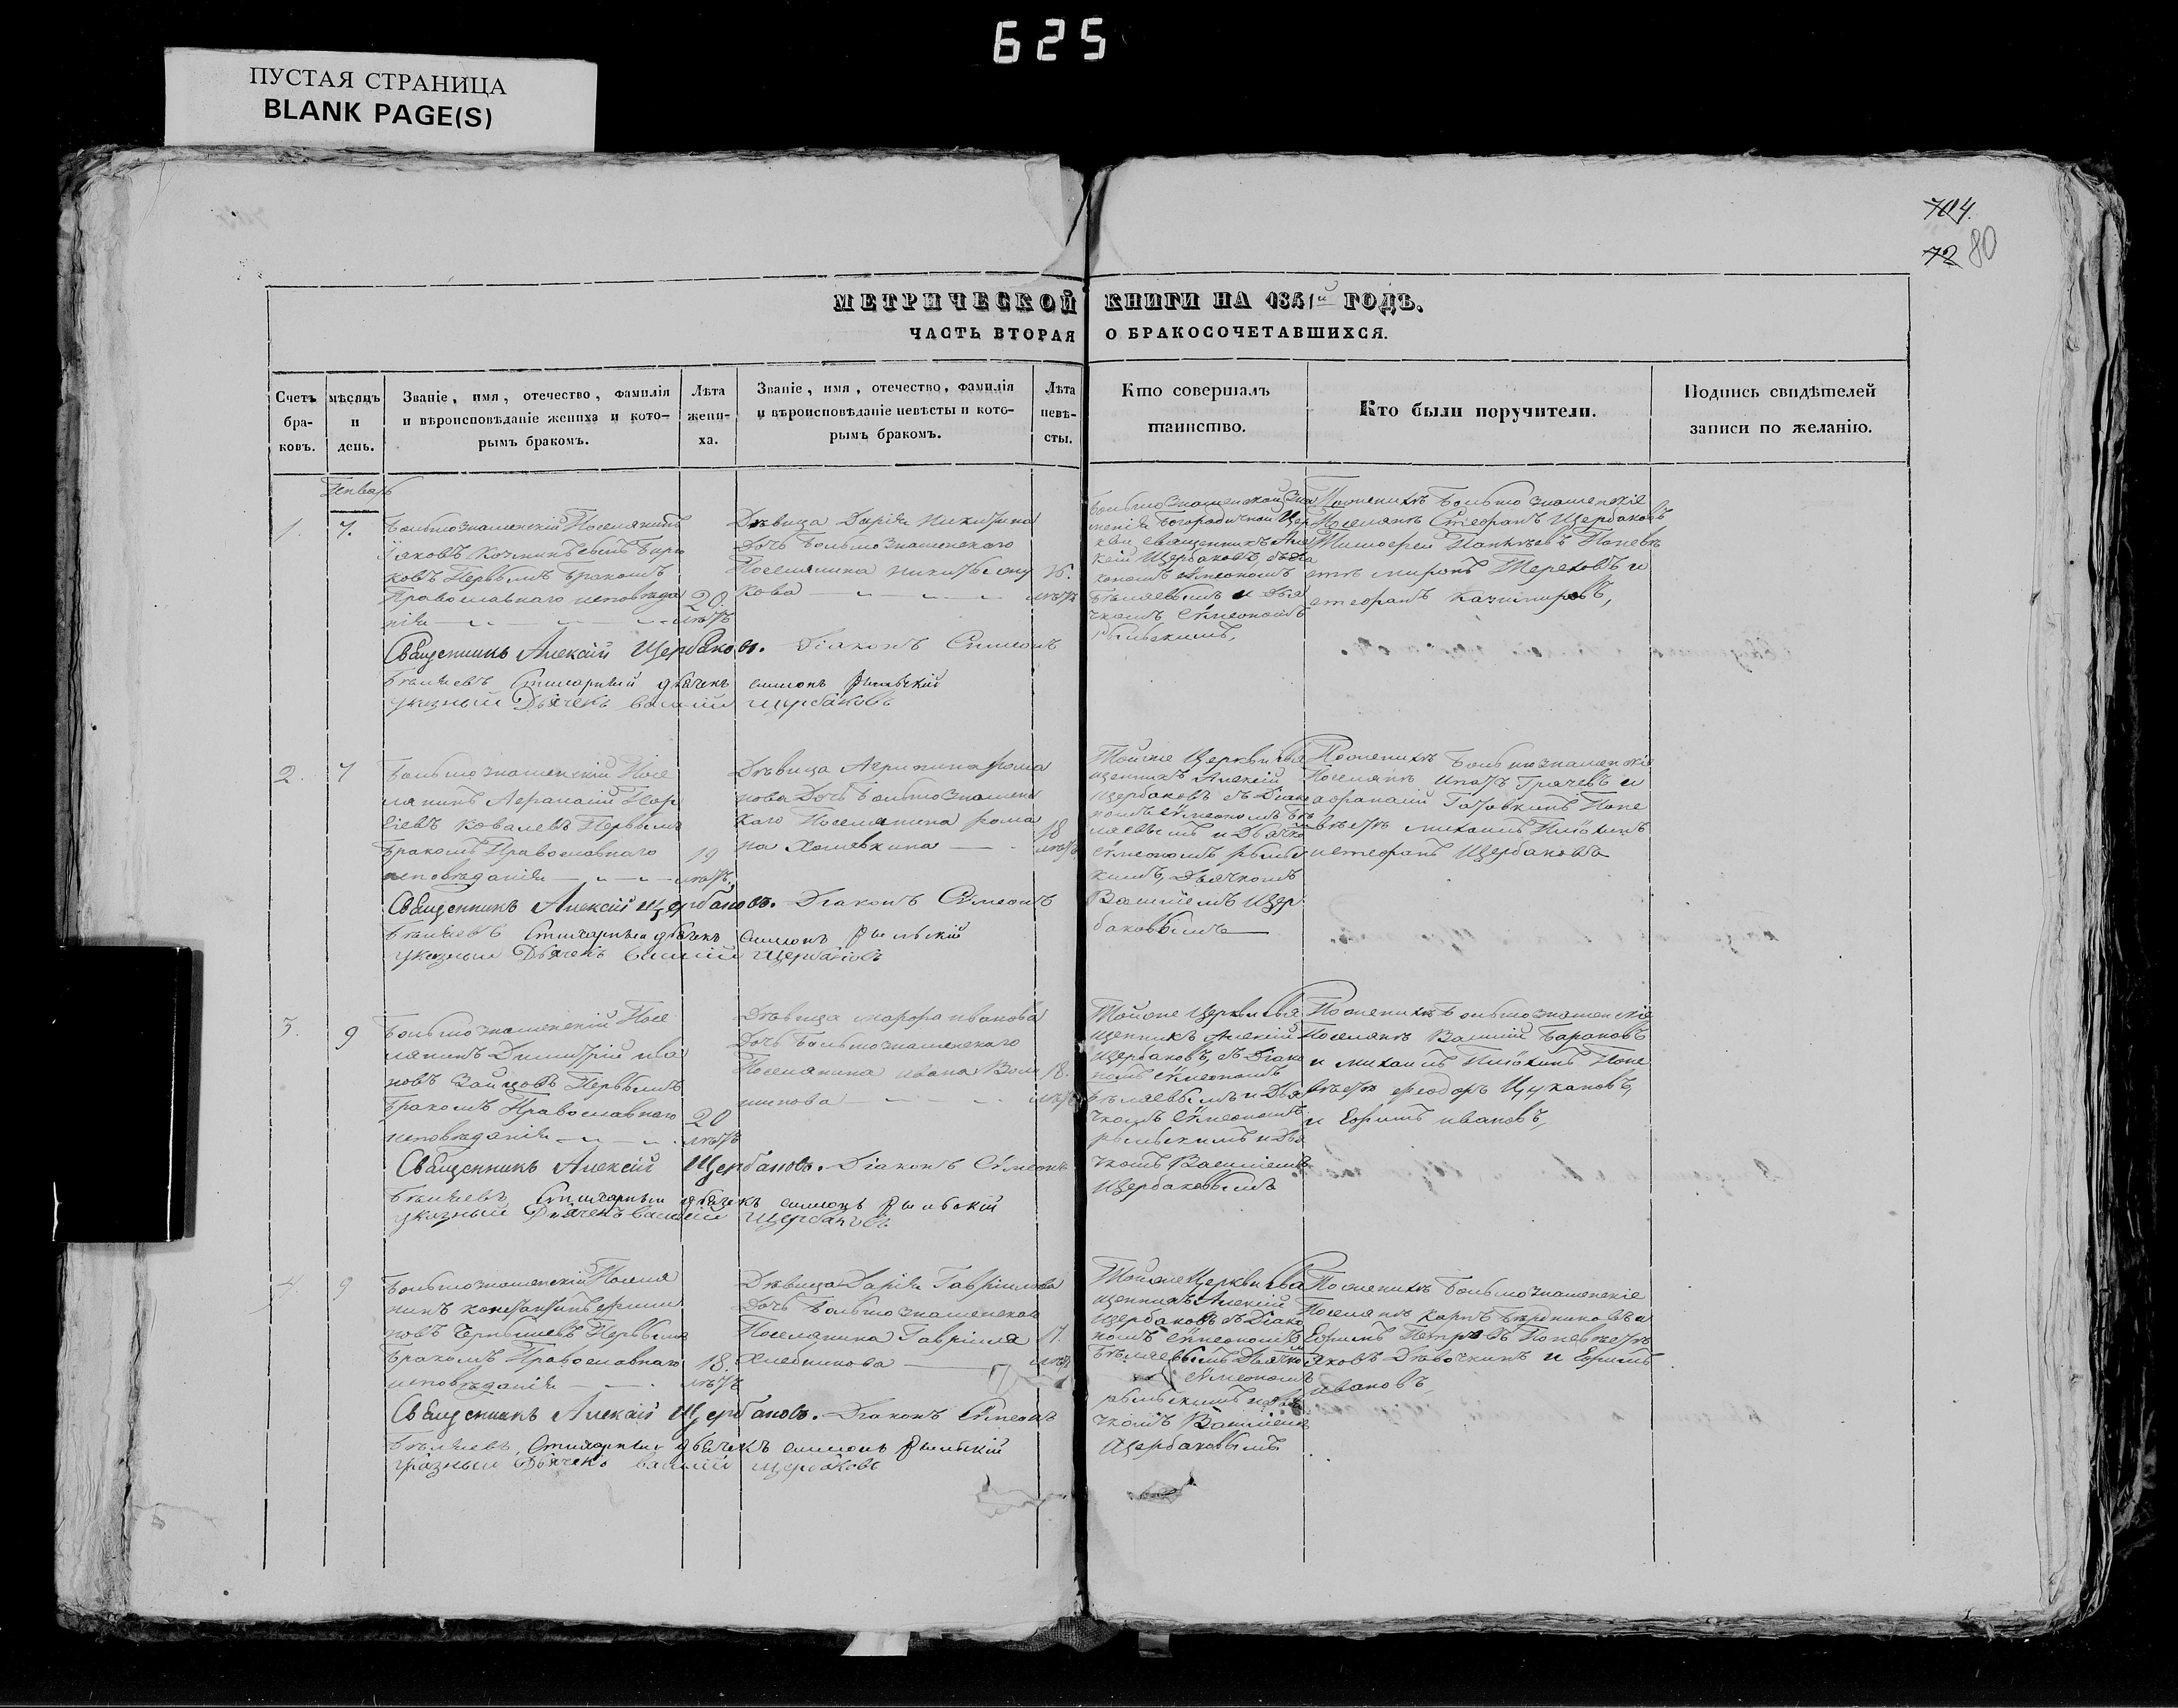 625
ПУСТАЯ СТРАНИЦА
BLANK PAGE(S)
704.
72 80
МЕТРИЧЕСКОЙ КНИГИ НА 1841й ГОДЪ.
ЧАСТЬ ВТОРАЯ О БРАКОСОЧЕТАВШИХСЯ.
Счетъ бра-ковъ.
мѣсяцъ и день.
Званіе, имя, отечество, фамилія
и вѣроисповѣданіе жениха и кото-
рымъ бракомъ.
Лѣта жени-ха.
Званіе, имя, отечество, фамилія
и вѣроисповѣданіе невѣсты и кото-
рымъ бракомъ.
Лѣта невѣ-сты.
Кто совершалъ
таинство.
Кто были поручители.
Подпись свидѣтелей
записи по желанію.
Генварь
1. 7.
Большознаменскій Поселянинъ
Іаковъ Козминъ сынъ Бирю
ковъ Первымъ Бракомъ
Православнаго исповѣда
нія
20
лѣтъ
Дѣвица Дарія Никитина
Дочь Большознаменскаго
Поселянина Никиты
кова
16.
лѣтъ
Большознаменской Зна
менія Богородичной Цер
кви священникъ Але
ксій Щербаковъ, съ Діа
кономъ Сѵмеономъ
Бѣляевымъ и Дья
чкомъ Сѵмеономъ
Рыльскимъ,
По женихѣ Большознаменскіе
Поселяне Стефанъ Щербаковъ
Тимофей Пантѣевъ По невѣ
стѣ Миронъ Тереховъ и
Стефанъ Казимировъ,
Священникъ Алексій Щербаковъ. Діаконъ Симеонъ
Бѣляевъ Стихарный дьячекъ симеонъ Рыльскій
указный Дьячекъ василій щербаковъ
2. 7
Большознаменскій Посе
лянинъ Афанасій Пор
Ковалевъ Первымъ
Бракомъ Православнаго
исповѣданія
19
лѣтъ,
Дѣвица Агрипина рома
нова Дочь Большознаменс
каго Поселянина рома
на Хомякина
18
лѣтъ
Тойже Церкви Свя
щенникъ Алексій
Щербаковъ съ Діако
номъ Сѵмеономъ Бѣ
ляевымъ и Дьячко
Сѵмеономъ рыльс
кимъ, Дьячкомъ
Василіемъ Щер
баковымъ
По женихѣ Большознаменскіе
Поселяне Игнатъ Грачевъ и
афанасій Готовкинъ По не
вѣстѣ михаилъ Пиюхинъ
и стефанъ Щербаковъ
Священникъ Алексій Щербаковъ. Діаконъ Сѵмеонъ
Бѣляевъ Стихарный дьячекъ симеонъ Рыльскій
указный Дьячекъ василій Щербаковъ
3. 9
Большознаменскій Посе
лянинъ Димитрій ива
новъ Зайцовъ Первымъ
Бракомъ Православнаго
исповѣданія
20
лѣтъ
Дѣвица марфа иванова
Дочь Большознаменскаго
Поселянина ивана Воло
шинова
18.
лѣтъ
Тойже Церкви Свя
щенникъ Алексій
Щербаковъ, съ Діако
номъ Сѵмеономъ
Бѣляевымъ и Дья
чкомъ Сѵмеономъ
рыльскимъ и Дья
чкомъ Василіемъ
Щербаковымъ
По женихѣ Большознаменскіе
Поселяне Василій Барановъ
и михаилъ Пиюхинъ По не
вѣстѣ Феодоръ Цукановъ,
и Ефимъ ивановъ,
Священникъ Алексій Щербаковъ. Діаконъ Сѵмеонъ
Бѣляевъ, Стихарный дьячекъ симеонъ Рыльскій
указный Дьячекъ василій Щербаковъ
4. 9
Большознаменскій Поселя
нинъ константинъ
новъ Чернышевъ Первымъ
Бракомъ Православнаго
исповѣданія
18.
лѣтъ
Дѣвица Дарія Гавріилова
Дочь Большознаменскаго
Поселянина Гавріила
Хлебникова
17.
лѣтъ
Тойже Церкви Свя
щенникъ Алексій
Щербаковъ съ Діако
номъ Сѵмеономъ
Бѣляевымъ Дьячко
Сѵмеономъ
рыльскимъ и Дья
чкомъ Василіемъ
Щербаковымъ
По женихѣ Большознаменскіе
Поселяне карпъ Бердниковъ и
Ефимъ Петровъ По невѣстѣ
яковъ Дѣвочкинъ и Ефимъ
ивановъ,
Священникъ Алексій Щербаковъ. Діаконъ Сѵмеонъ
Бѣляевъ, Стихарный дьячекъ симеонъ Рыльскій
указный Дьячекъ василій щербаковъ